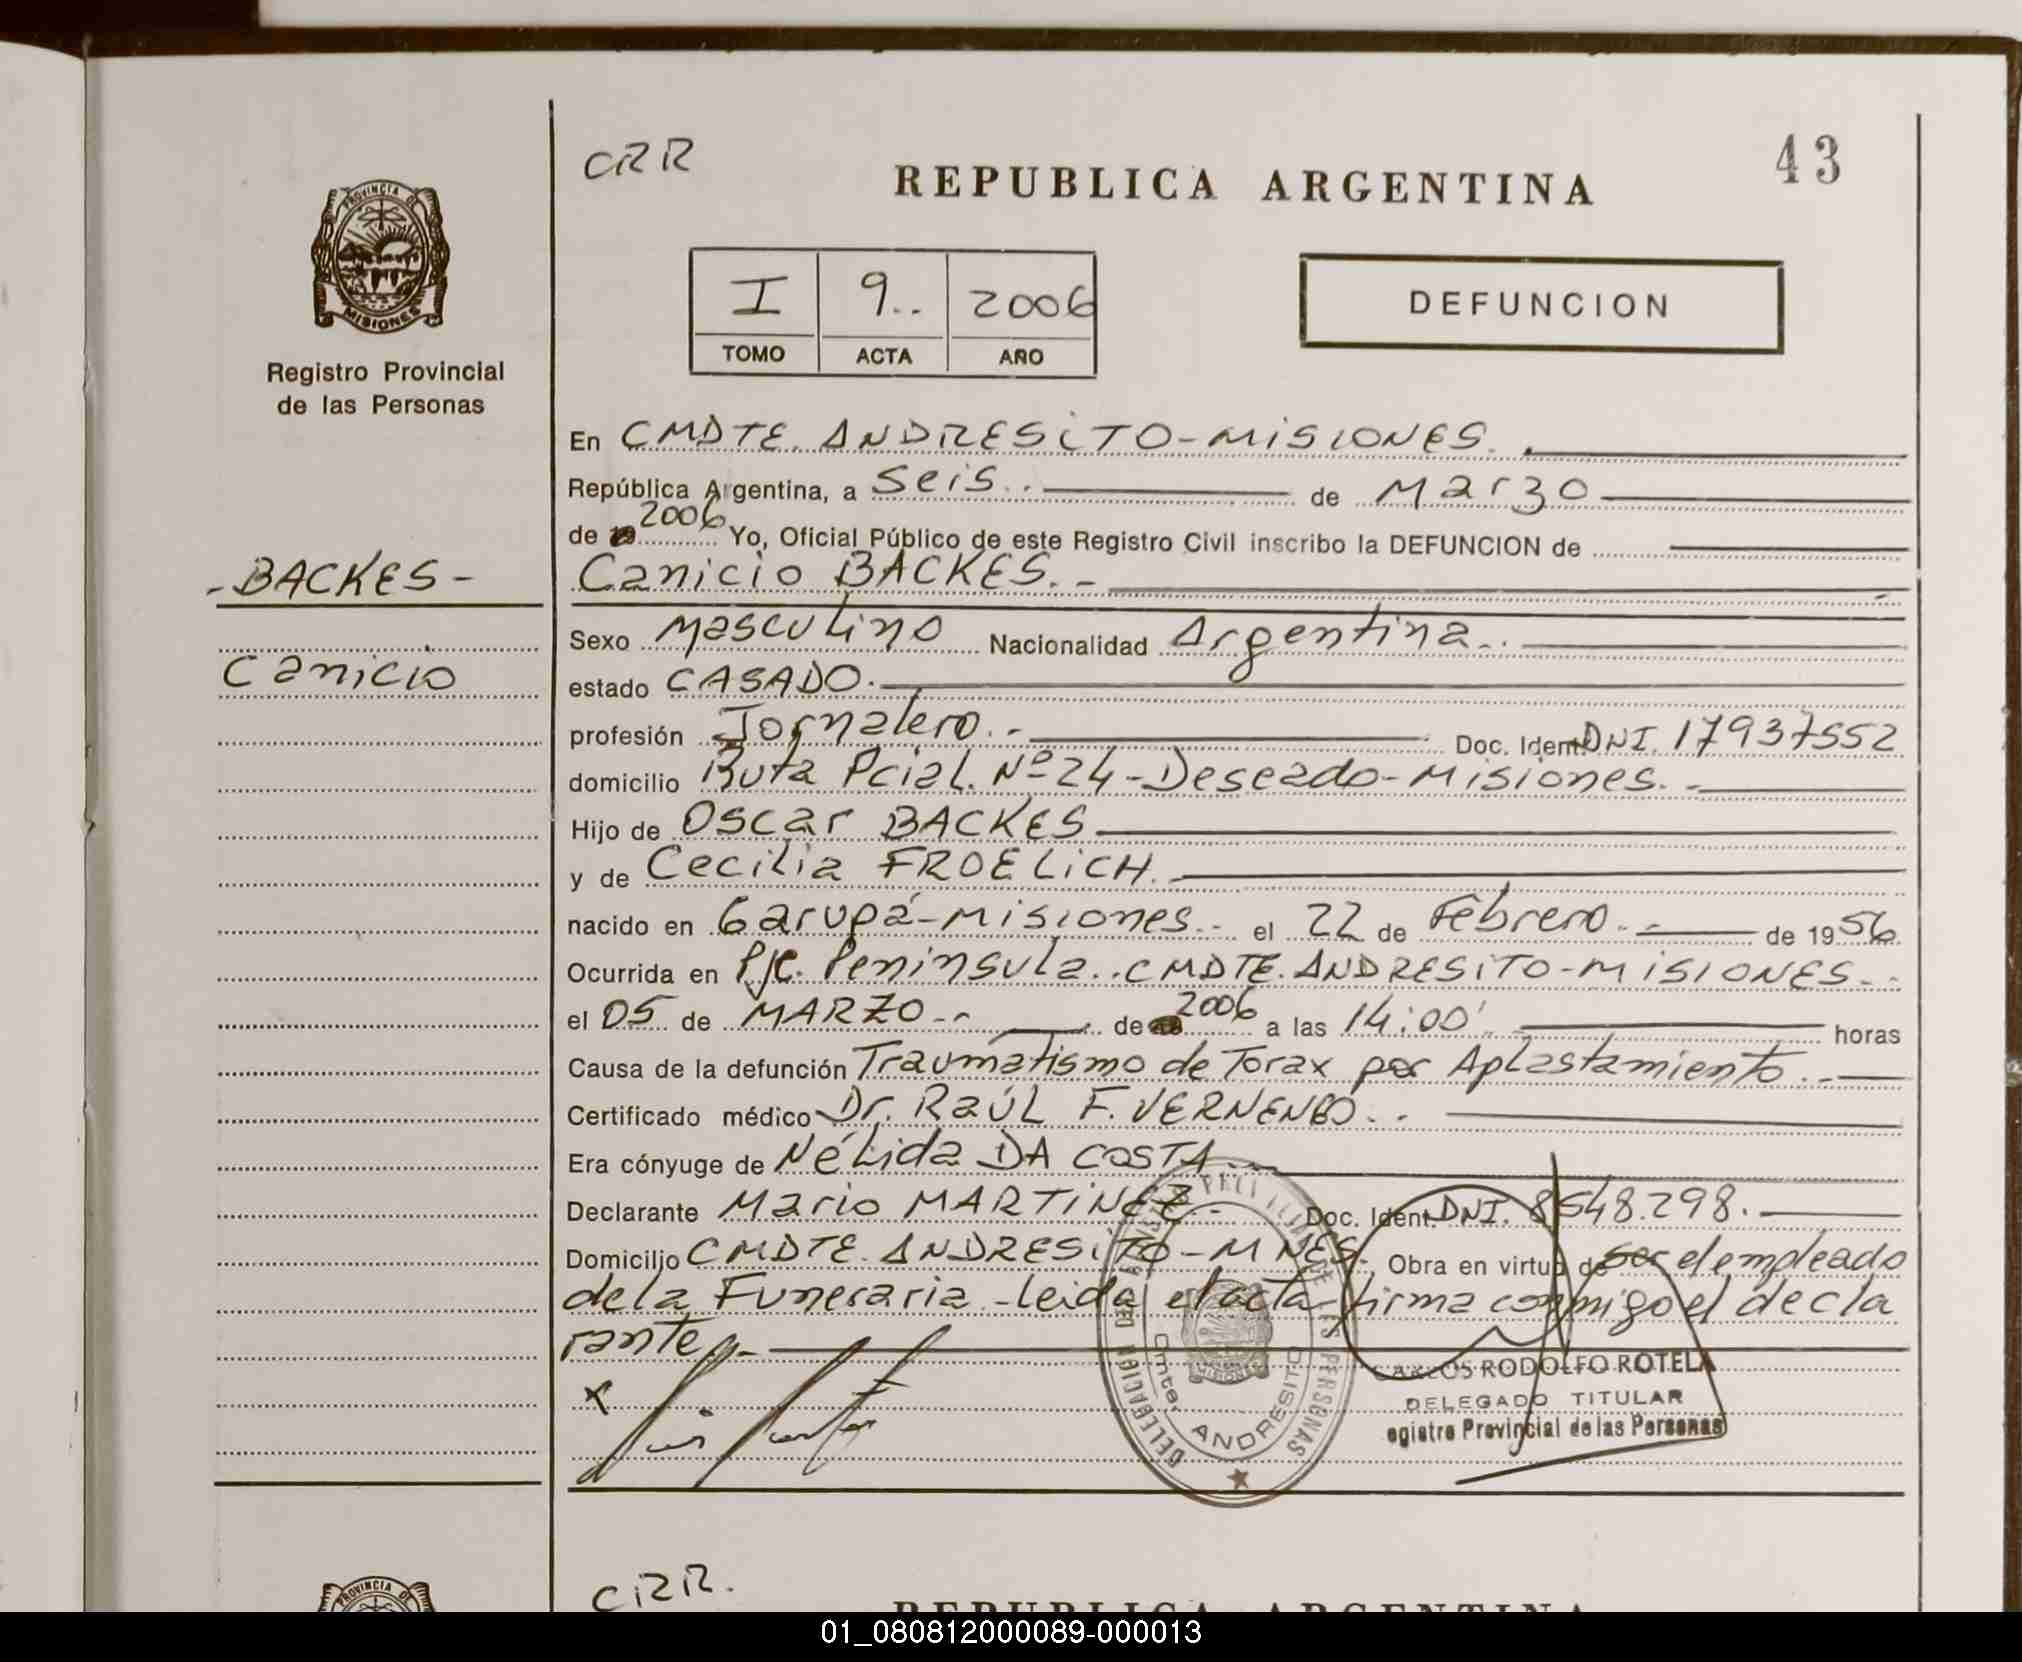 CRR
REPUBLICA ARGENTINA
43
PROVINCIA DE
MISIONES
Registro Provincial
de las Personas
I 9.. 2006
TOMO ACTA AÑO
DEFUNCION
En CMDTE. ANDRESiTO-MiSIONES.
República Argentina, a seis.. de Marzo
de 19 2006 Yo, Oficial Público de este Registro Civil inscribo la DEFUNCION de
-BACKES-
Canicio BACKES.-
Canicio
Sexo Masculino Nacionalidad Argentina..
estado CASADO.
profesión Jornalero.- Doc. Ident. DNI. 17937552
domicilio Ruta Pcial. Nº 24-Deseado-Misiones.-
Hijo de Oscar BACKES
y de Cecilia FROELiCH.
nacido en Garupá-Misiones.- el 22 de Febrero.- de 1956
Ocurrida en Pje. Peninsula..CMDTE. ANDRESiTO-MiSIONES.-
el 05 de MARZO.- de 2006 a las 14:00' horas
Causa de la defunción Traumatismo de Torax por Aplastamiento.-
Certificado médico Dr. RaúL F. VERNENGO..
Era cónyuge de NéLida DA COSTA.-
Declarante Mario MARTiNEZ.- Doc. Ident. DNI. 8548.298.
Domicilio CMDTE. ANDRESiTO-MNES., Obra en virtud de ser el empleado
de la Funeraria-leida el acta firma conmigo el decla
rante.-
x
DELEGACION DEL PERSONAS
Cmte. ANDRESITO
MISIONES
CARLOS RODOLFO ROTELA
DELEGADO TITULAR
egistro Provincial de las Personas
PROVINCIA DE
CRR.
REPUBLICA ARGENTINA
01_080812000089-000013